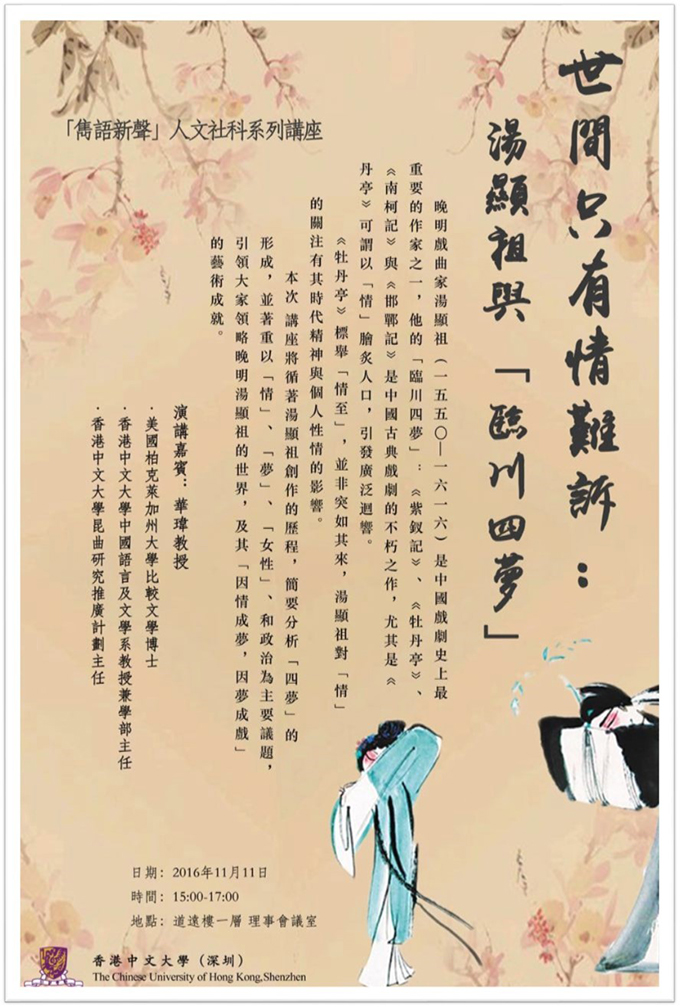 世間只有情難訴：
湯顯祖與「臨川四夢」
「雋語新聲」人文社科系列講座
晚明戲曲家湯顯祖（一五五〇—一六一六）是中國戲劇史上最
重要的作家之一，他的「臨川四夢」：《紫釵記》、《牡丹亭》、
《南柯記》與《邯鄲記》是中國古典戲劇的不朽之作，尤其是《
丹亭》可謂以「情」膾炙人口，引發廣泛迴響。
《牡丹亭》標舉「情至」，並非突如其來，湯顯祖對「情」
的關注有其時代精神與個人性情的影響。
本次 講座將循著湯顯祖創作的歷程，簡要分析「四夢」的
形成，並著重以「情」、「夢」、「女性」、和政治為主要議題，
引領大家領略晚明湯顯祖的世界，及其「因情成夢，因夢成戲」
的藝術成就。
演講嘉賓：華瑋教授
·美國柏克萊加州大學比較文學博士
·香港中文大學中國語言及文學系教授兼學部主任
·香港中文大學昆曲研究推廣計劃主任
日期：2016年11月11日
時間：15:00-17:00
地點：道遠樓一層 理事會議室
香港中文大學（深圳）
The Chinese University of Hong Kong,Shenzhen